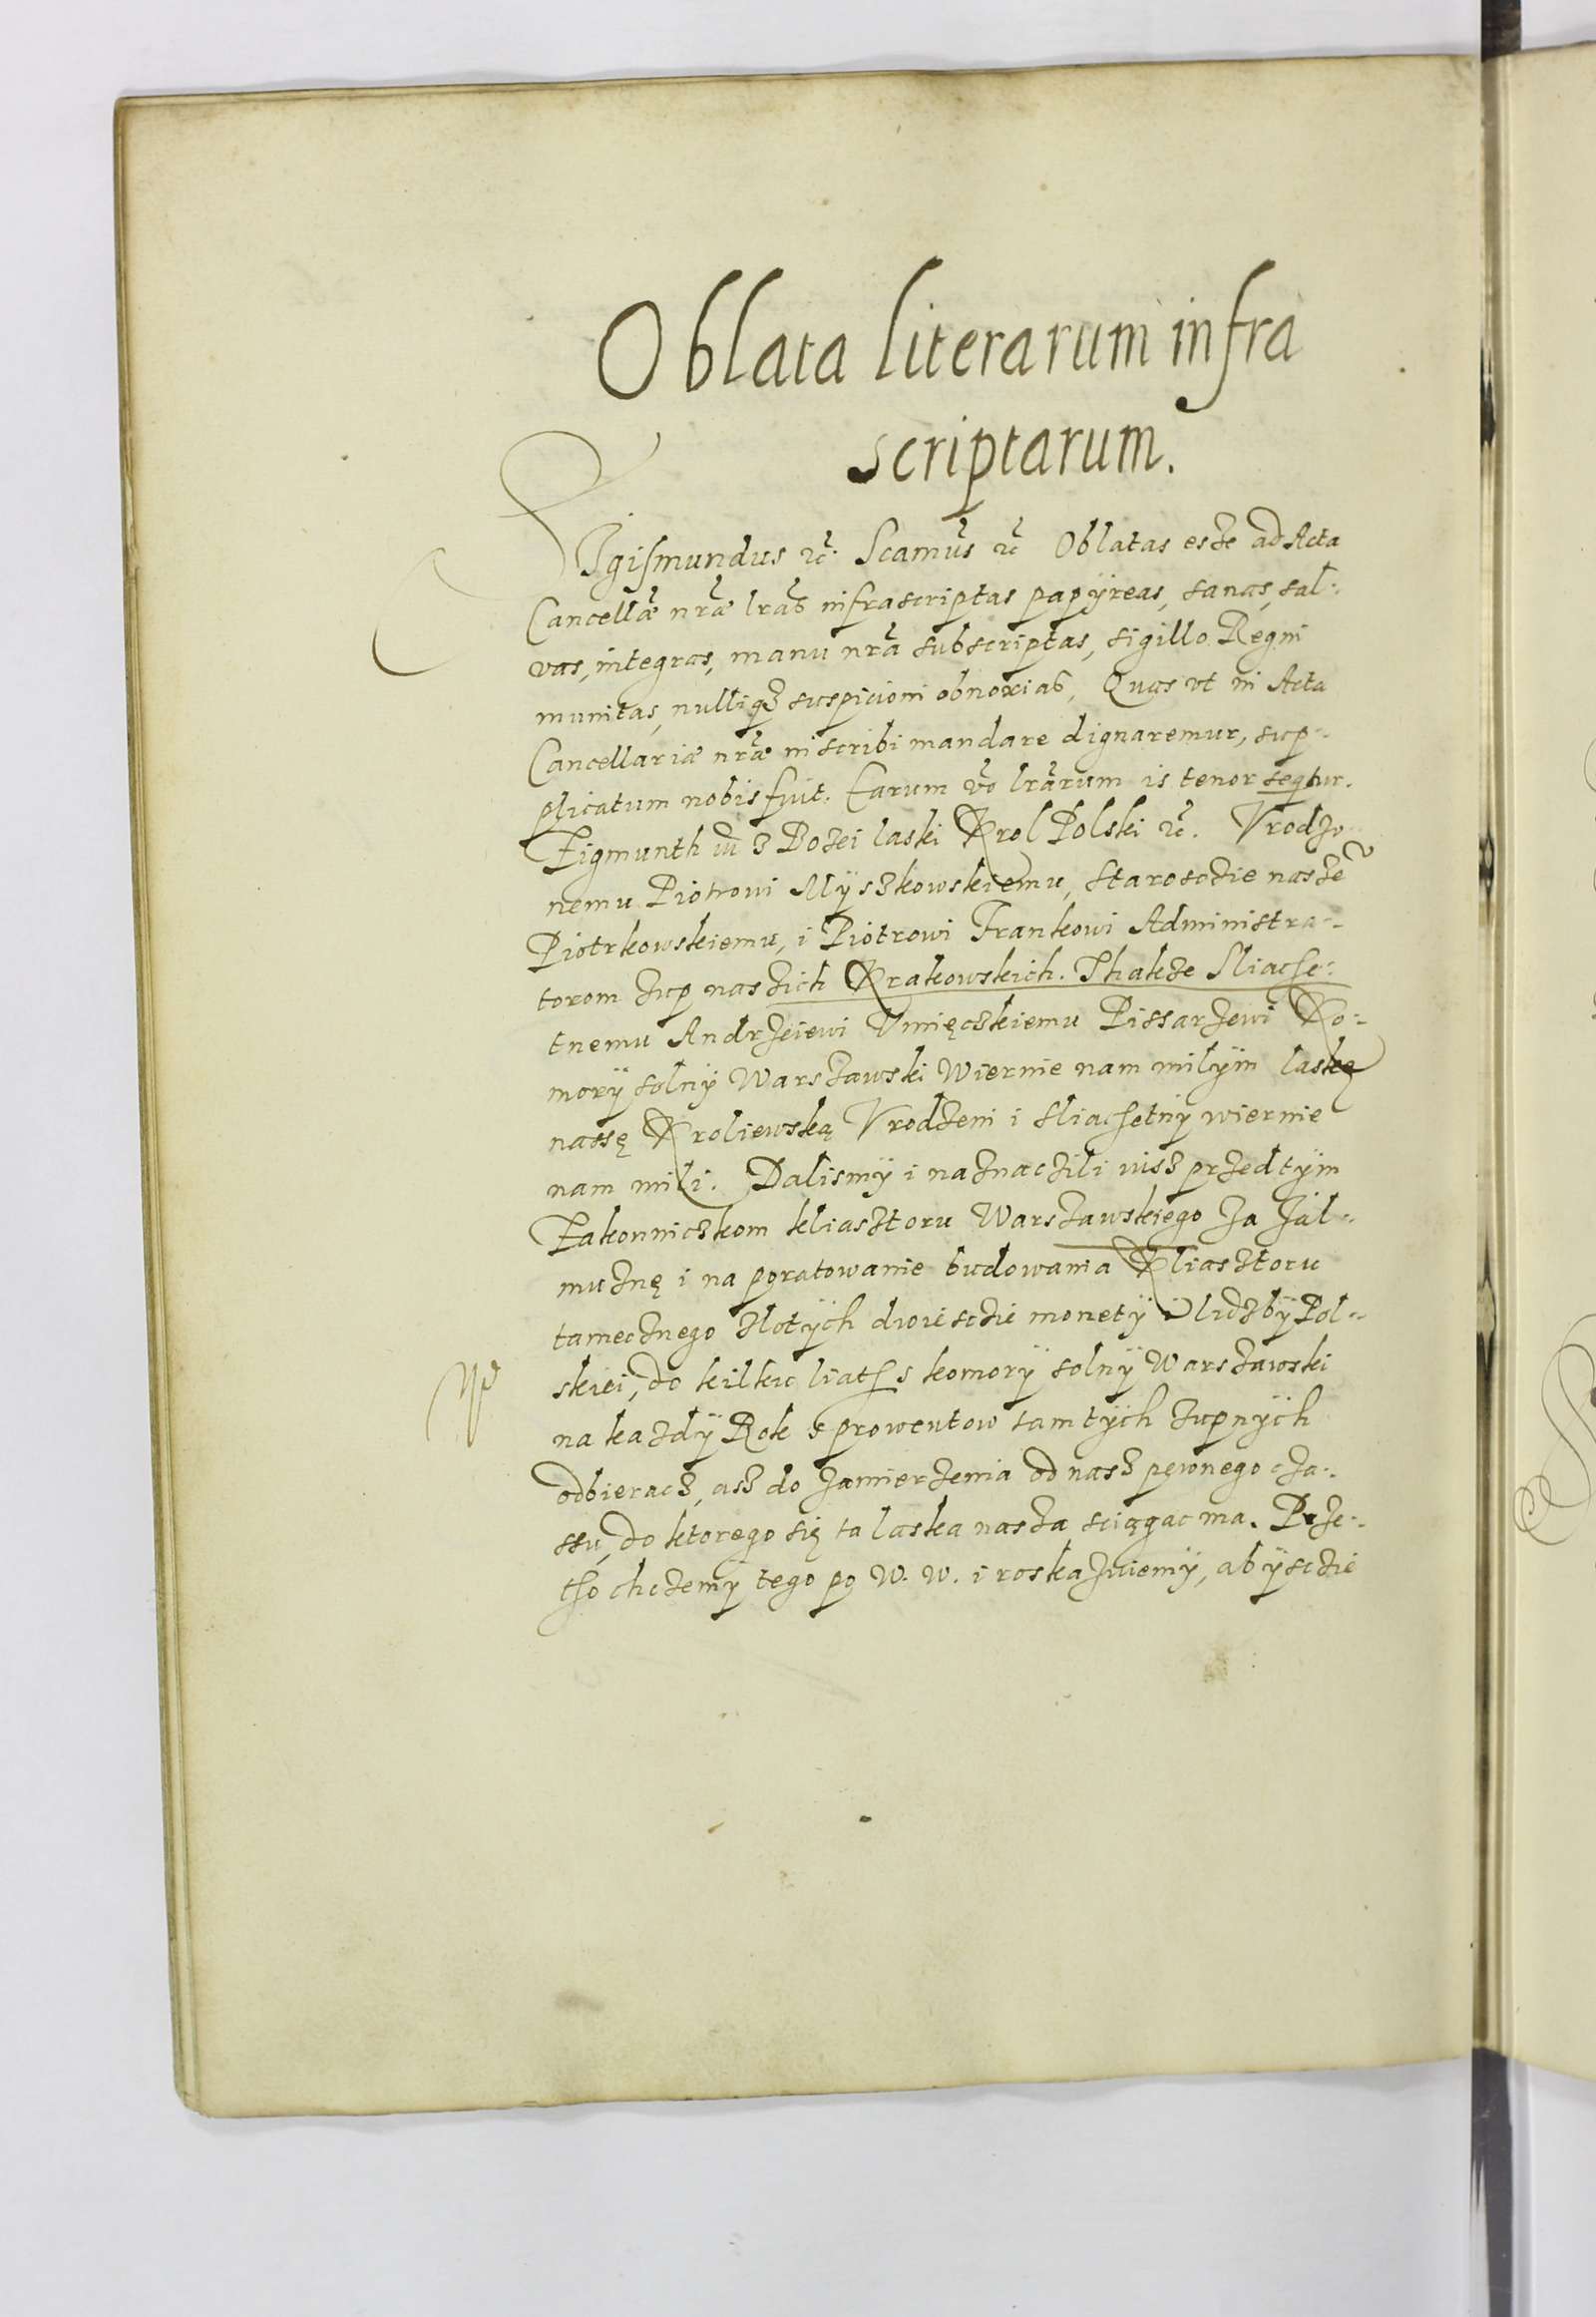 Oblata literarum infra
scriptarum.
Sigismundus etc. Scamus etc. Oblatas esse ad Acta
Cancellae nrae lras infrascriptas papÿreas, sanas, sal:
vas, integras, manu nra subscriptas, sigillo Regni
munitas, nulliq3 suspicioni obnoxias, Quas vt in Acta
Cancellariae nrae inscribi mandare dignaremur, sup-
plicatum nobis fuit. Earum vo lrarum is tenor seqtur.
Zigmunth III z Bozei laski Krol Polski etc. Vrodzo
nemu Piotrowi Mÿszkowskiemu, starosczie nasze
Piotrkowskiemu, i Piotrowi Frankowi Administra-
torom zup naszich Krakowskich. Thakze Sliache:
tnemu Andrzeiewi Vmięczkiemu Pissarzewi Ko:
morÿ solnÿ Warszawski Wiernie nam milÿm laskę
nassę Kroliewską Vrodzeni i sliachetnÿ wiernie
nam mili. Dalismÿ i naznaczili iusz przedtÿm
Zakonniczkom kliasztoru Warszawskiego za jal-
muznę i na poratowanie budowania Kliasztoru
tamecznego zlotÿch dwiesczie monetÿ i liczbÿ Pol-
skiei, do kilku liath s komorÿ solnÿ Warszawski
na kazdÿ Rok s prowentow tamtÿch zupnÿch
odbieracz, asz do zamierzenia od nasz pewnego cza-
ssu, do ktorego się ta laska nasza sciągac ma. Prze-
tho chczemÿ tego po W. W. i roskazuiemÿ, abÿsczie